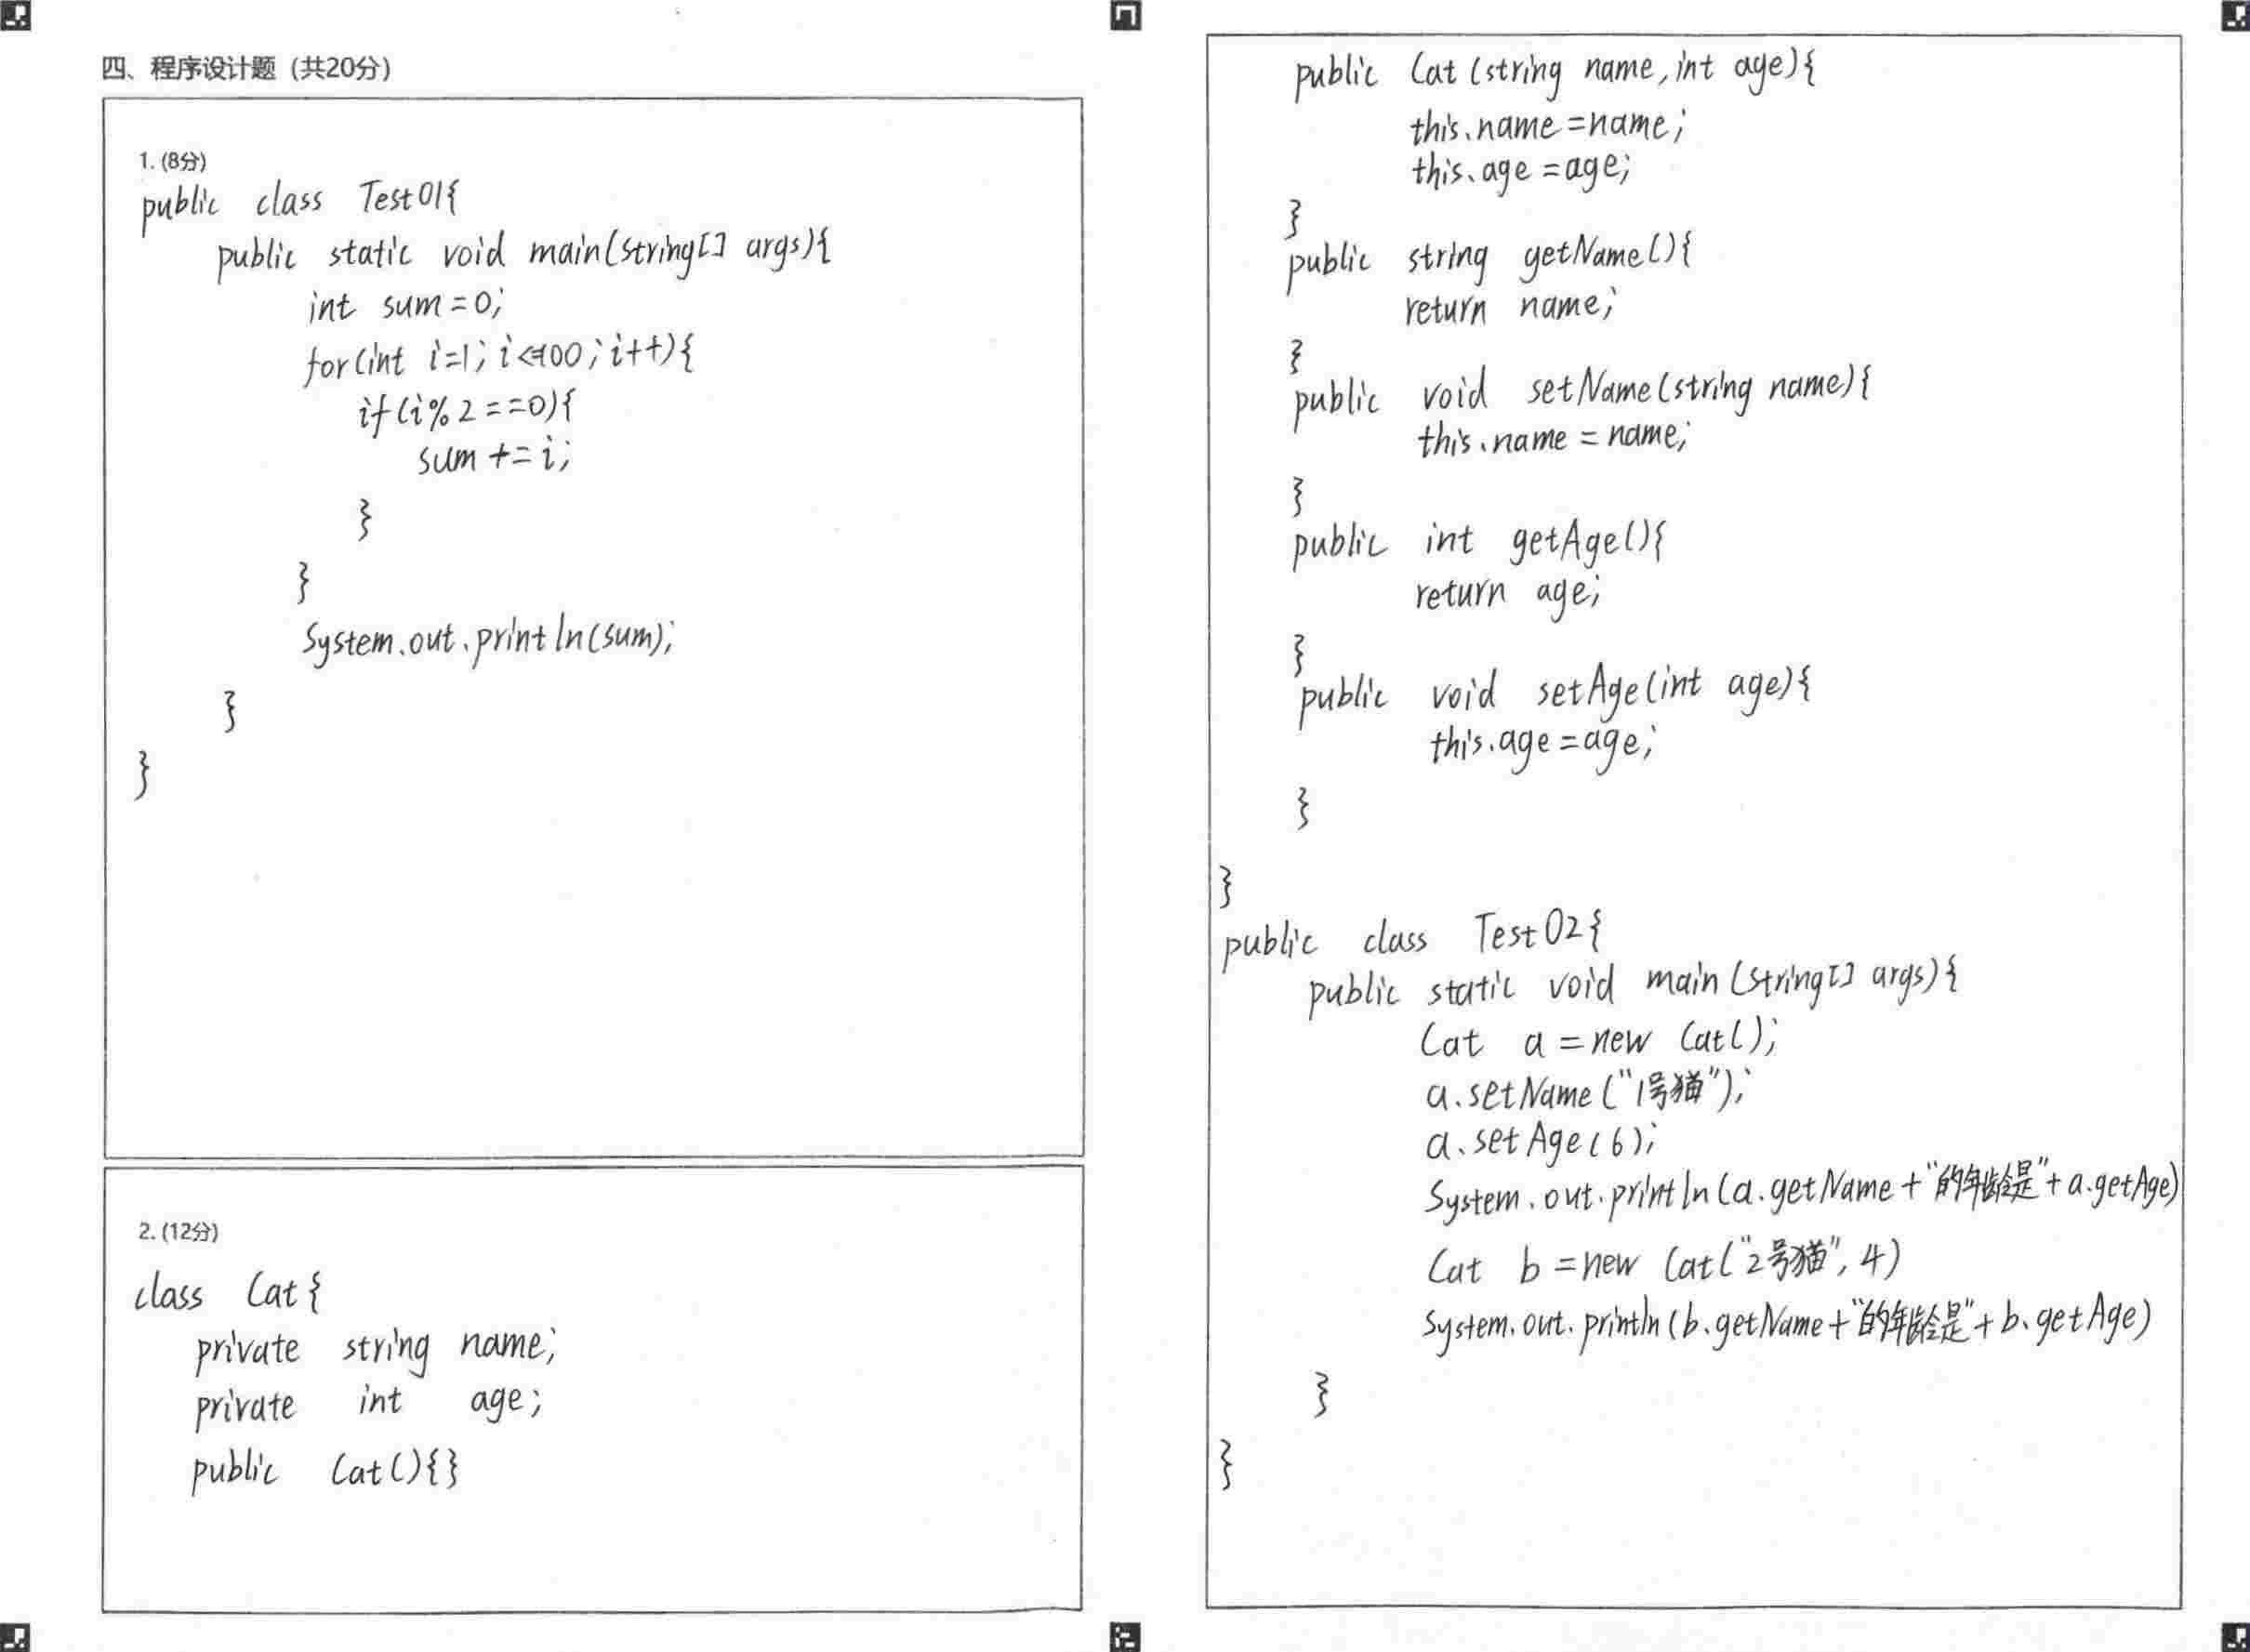 四、程序设计题（共20分）
1. (8分)
public class Test01{
public static void main(string[] args){
int sum=0;
for(int i=1; i<=100; i++){
if(i%2==0){
sum += i;
}
}
System.out.println(sum);
}
}
2. (12分)
class Cat{
private string name;
private int age;
public Cat(){}
public Cat(string name, int age){
this.name=name;
this.age=age;
}
public string getName(){
return name;
}
public void setName(string name){
this.name = name;
}
public int getAge(){
return age;
}
public void setAge(int age){
this.age=age;
}
}
public class Test02{
public static void main(string[] args){
Cat a=new Cat();
a.setName("1号猫");
a.setAge(6);
System.out.println(a.getName+"的年龄是"+a.getAge)
Cat b=new Cat("2号猫",4)
System.out.println(b.getName+"的年龄是"+b.getAge)
}
}